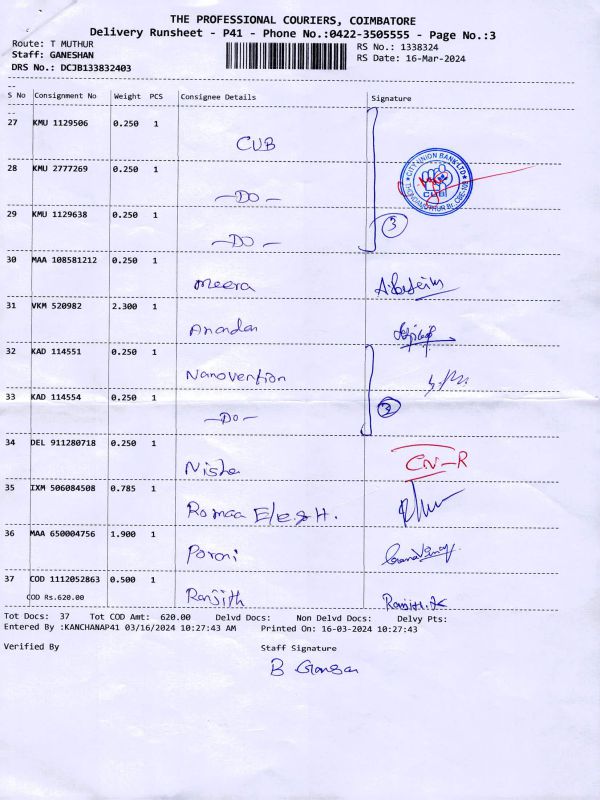 THE PROFESSIONAL COURIERS, COIMBATORE
Delivery Runsheet - P41 - Phone No.:0422-3505555 - Page No.:3
Route: T MUTHUR
RS No.: 1338324
Staff: GANESHAN
RS Date: 16-Mar-2024
DRS No.: DCJB133832403
S No Consignment No Weight PCS Consignee Details Signature
27 KMU 1129506 0.250 1
CUB
28 KMU 2777269 0.250 1
CITY UNION BANK LTD
CUB
-DO-
29 KMU 1129638 0.250 1
3
-DO-
30 MAA 108581212 0.250 1
Meera
31 VKM 520982 2.300 1
Anandan
32 KAD 114551 0.250 1
Nanovention
33 KAD 114554 0.250 1
2
-Do-
34 DEL 911280718 0.250 1
Nisha CN-R
35 IXM 506084508 0.785 1
Romaa E/e&H.
36 MAA 650004756 1.900 1
Porani
37 COD 1112052863 0.500 1
COD Rs.620.00 Ranjith Ranjith.K
Tot Docs: 37 Tot COD Amt: 620.00 Delvd Docs: Non Delvd Docs: Delvy Pts:
Entered By :KANCHANAP41 03/16/2024 10:27:43 AM Printed On: 16-03-2024 10:27:43
Verified By Staff Signature
B Ganesan